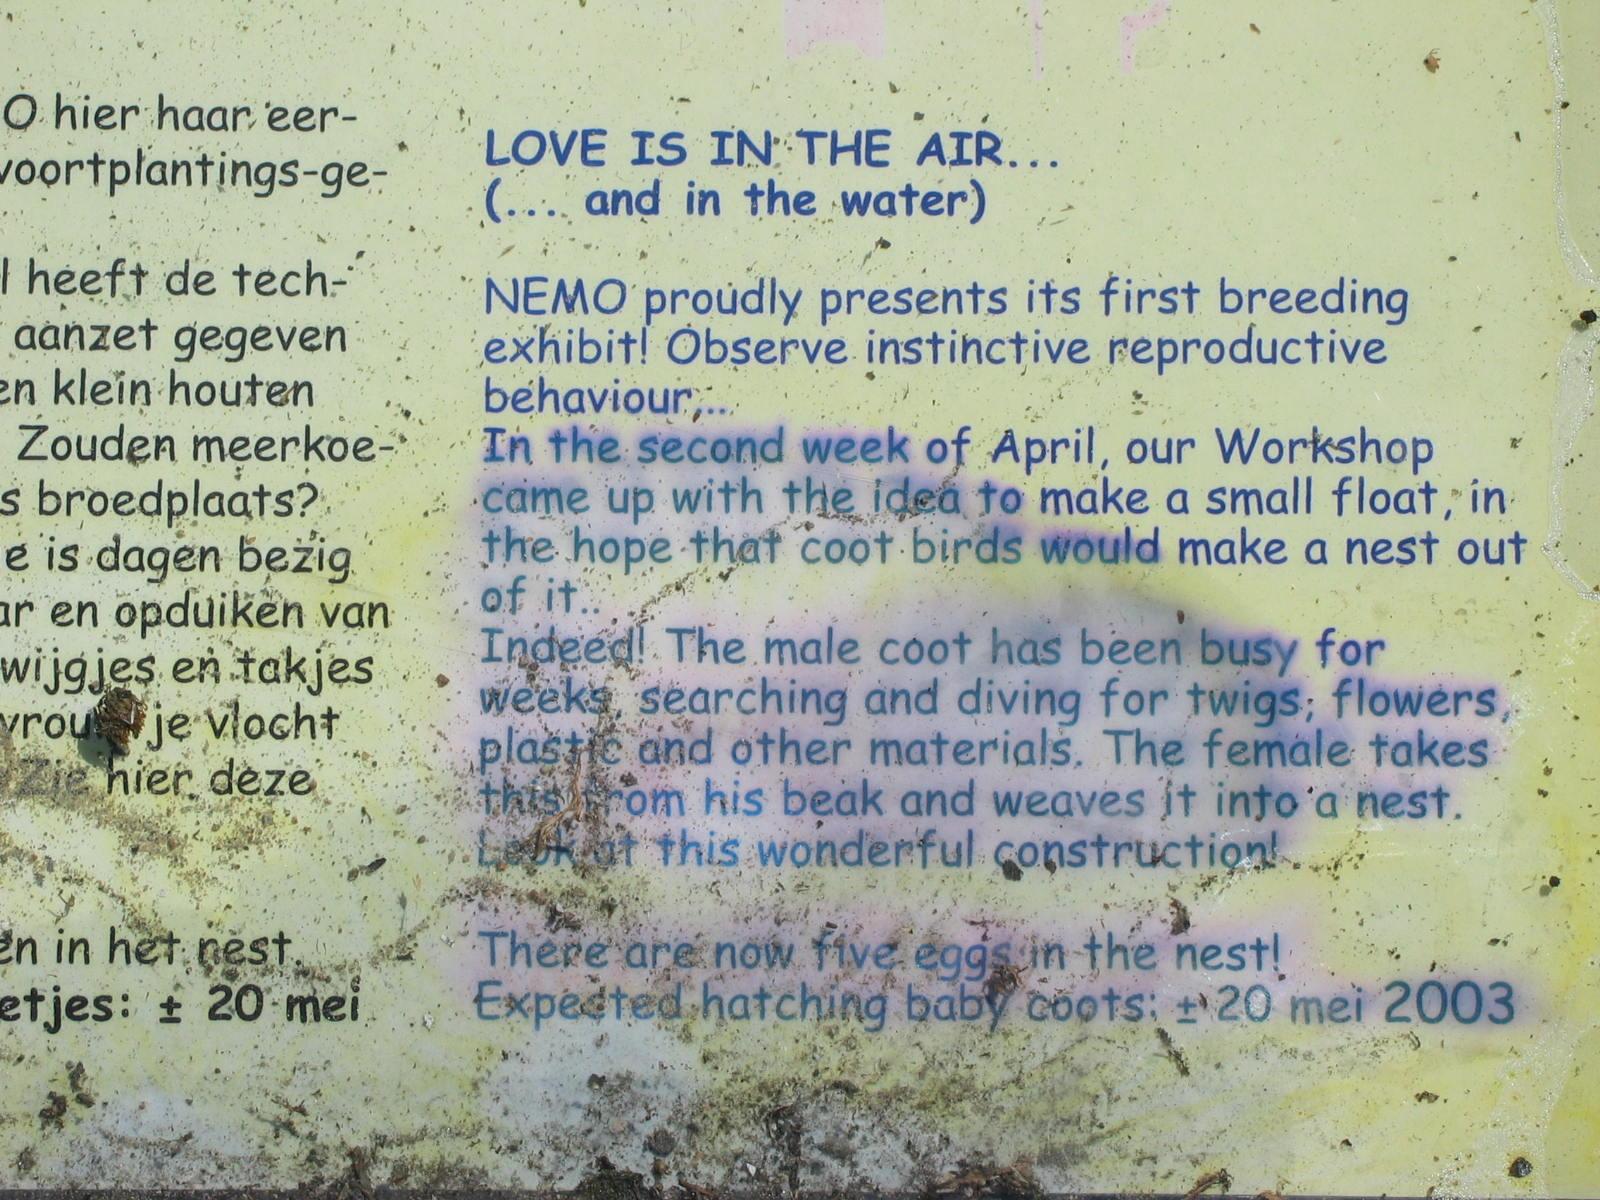 O hier haar eer-
voortplantings-ge-
l heeft de tech-
aanzet gegeven
en klein houten
Zouden meerkoe-
s broedplaats?
e is dagen bezig
ar en opduiken van
wijgjes en takjes
vrouw je vlocht
Zie hier deze
en in het nest.
etjes: ± 20 mei
LOVE IS IN THE AIR...
(... and in the water)
NEMO proudly presents its first breeding
exhibit! Observe instinctive reproductive
behaviour...
In the second week of April, our Workshop
came up with the idea to make a small float, in
the hope that coot birds would make a nest out
of it..
Indeed! The male coot has been busy for
weeks, searching and diving for twigs, flowers,
plastic and other materials. The female takes
this from his beak and weaves it into a nest.
Look at this wonderful construction!
There are now five eggs in the nest!
Expected hatching baby coots: ± 20 mei 2003